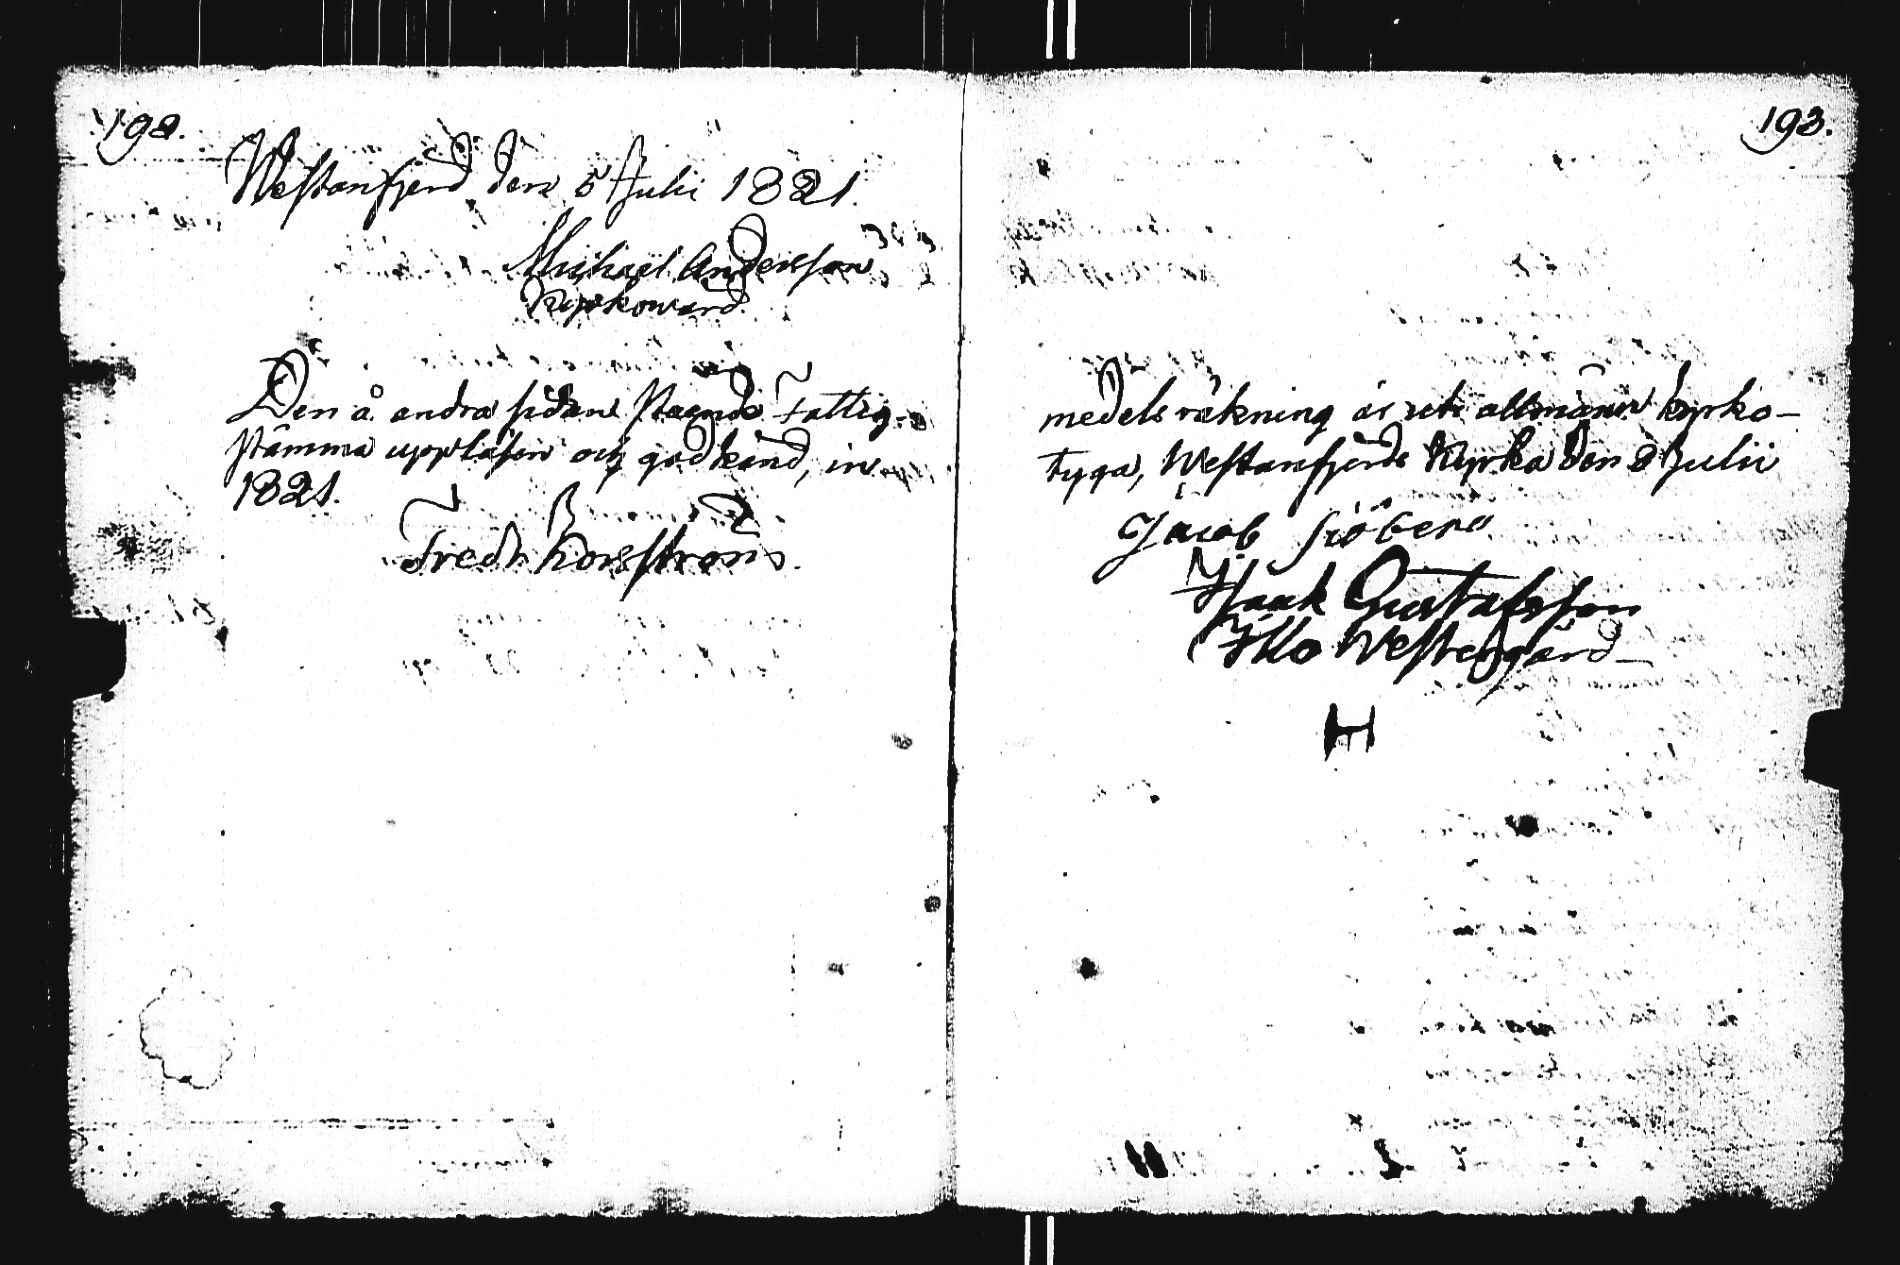 192.
Westanfjerd den 5 Julii 1821.
Michael Andersson
Kyrkoward
Den å andra sidan staende Fattig-
stämma uppläsen och godkänd, in
1821.
Fredr. Forsström
193.
medels räkning är uti allmänn kyrko-
tyga, Westanfjerds Kyrka den 8 Julii
Jacob Siöberg
Isaak Gustafsson
Illo Westergård
H